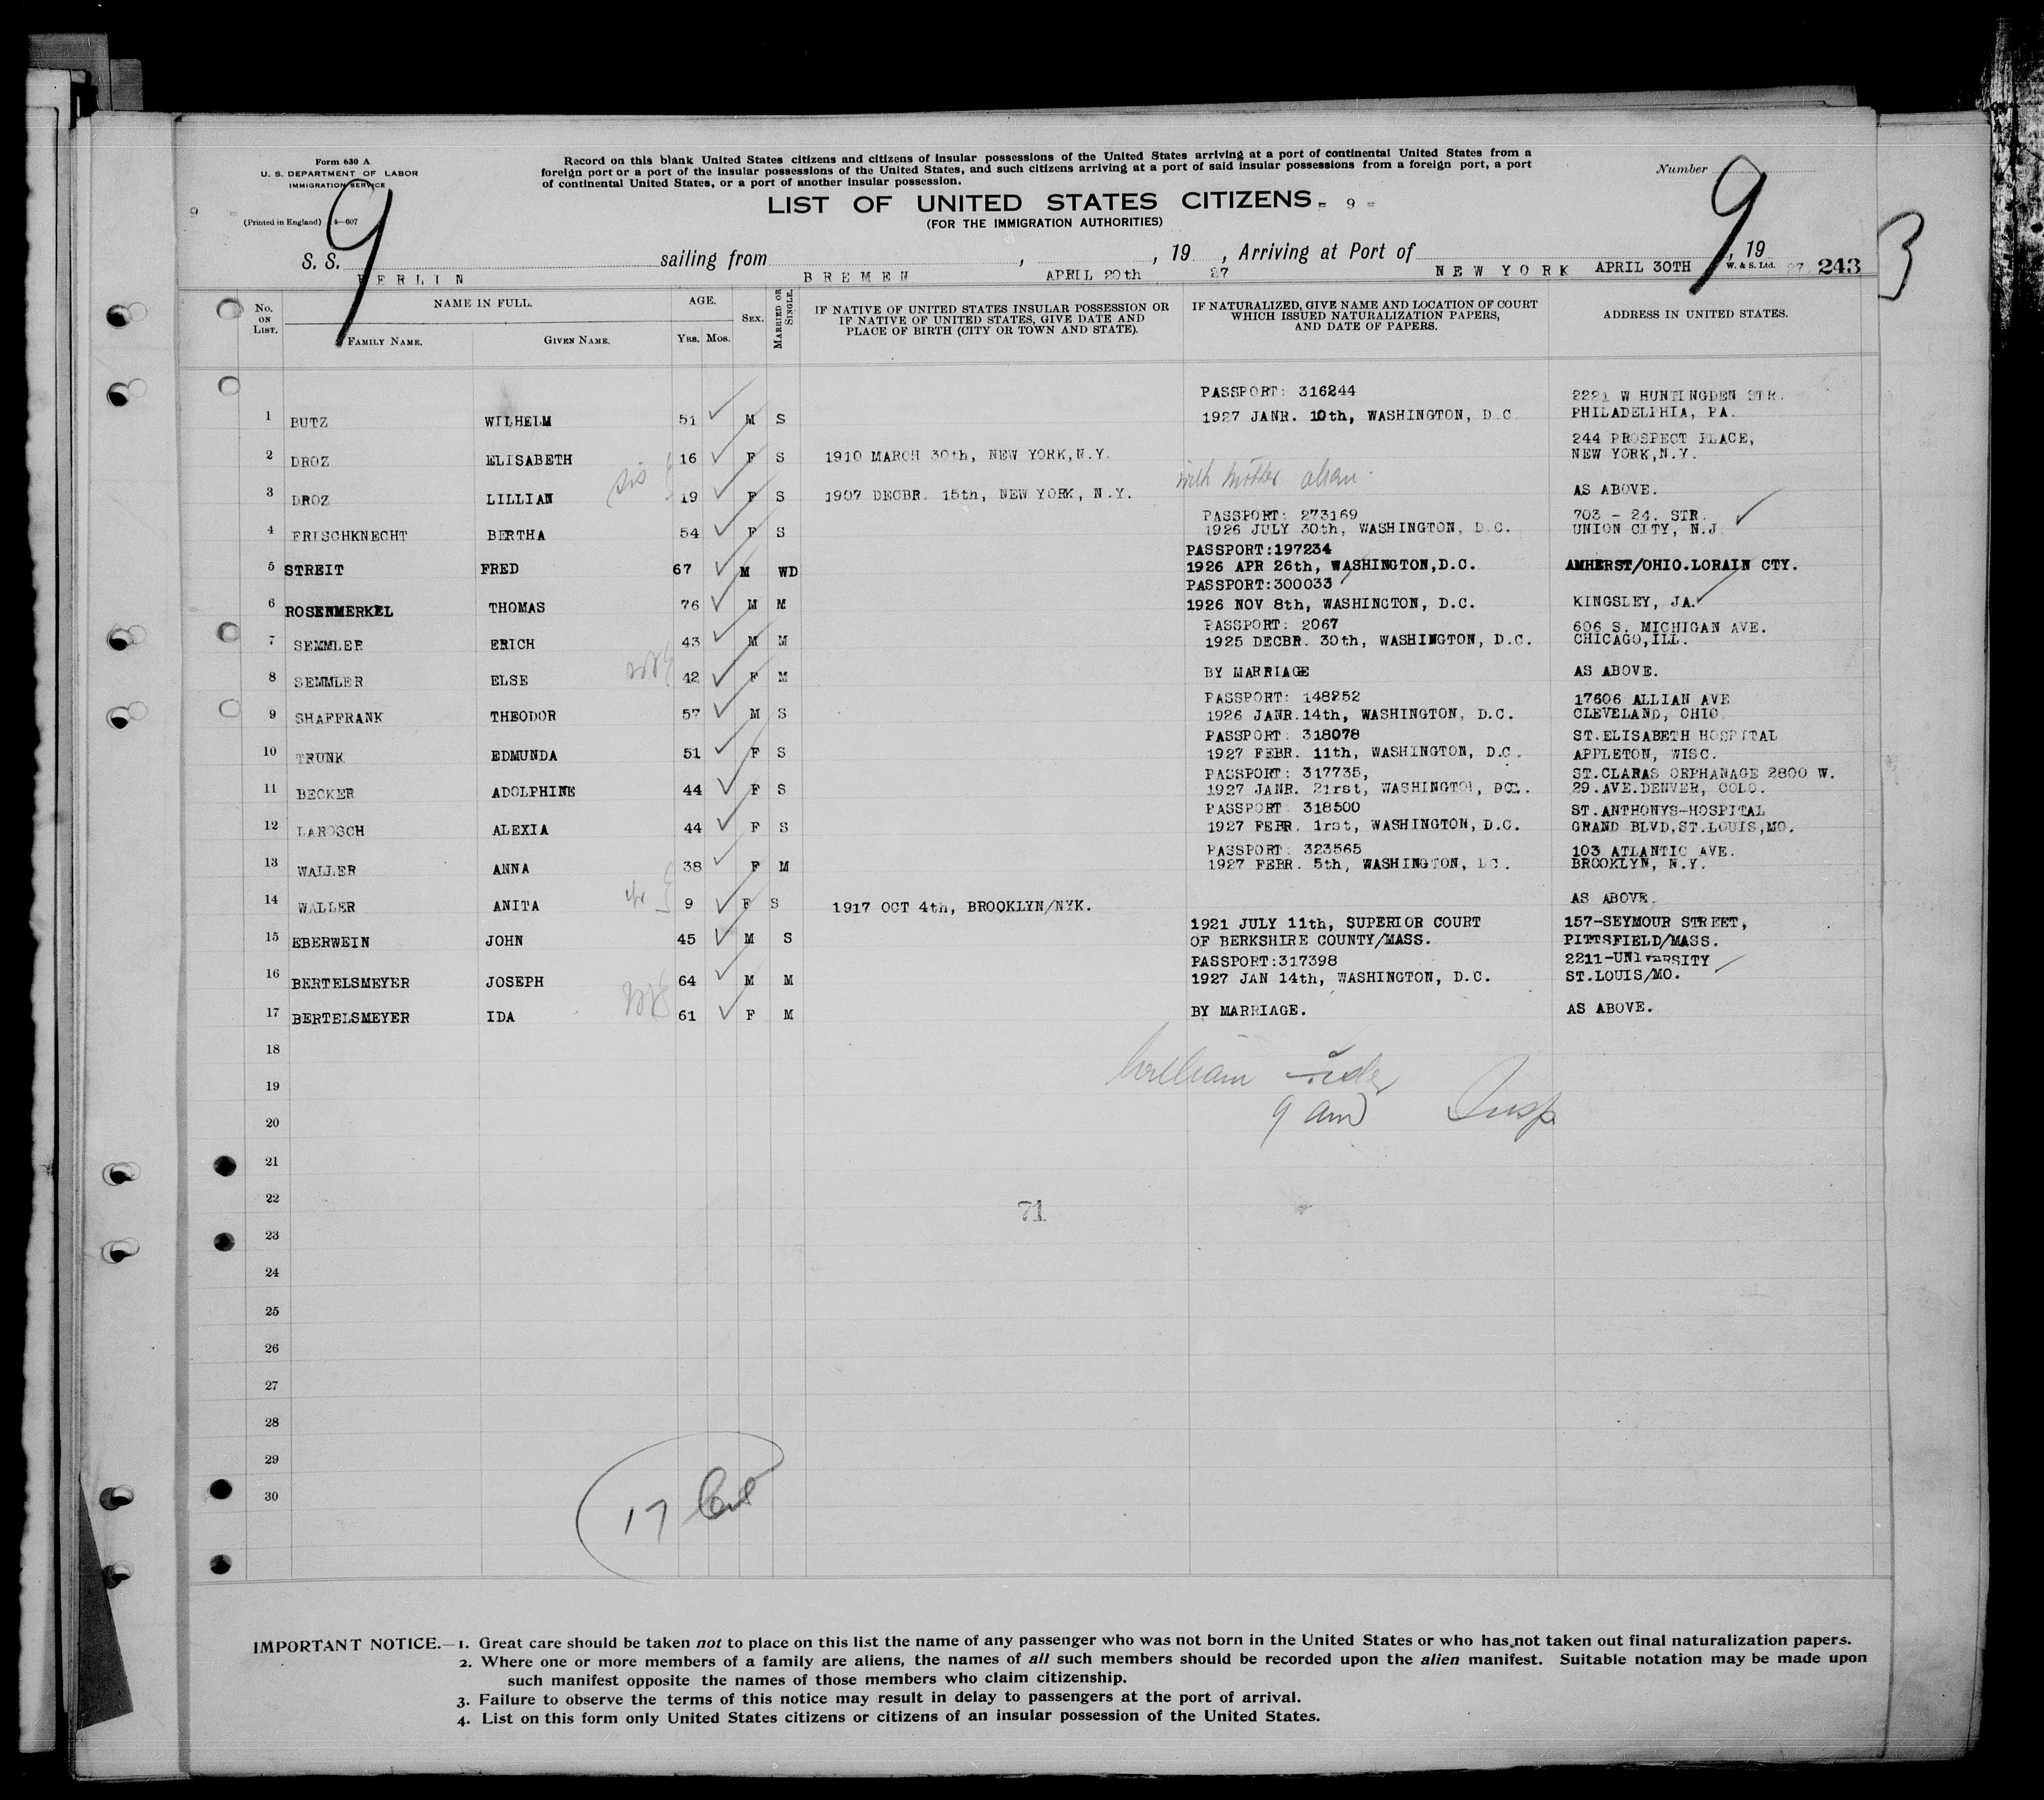 Form 630 A
U. S. DEPARTMENT OF LABOR
IMMIGRATION SERVICE
(Printed in England) 4—607
9
9
Record on this blank United States citizens and citizens of insular possessions of the United States arriving at a port of continental United States from a
foreign port or a port of the insular possessions of the United States, and such citizens arriving at a port of said insular possessions from a foreign port, a port
of continental United States, or a port of another insular possession.
Number
9
3
LIST OF UNITED STATES CITIZENS - 9 -
(FOR THE IMMIGRATION AUTHORITIES)
S. S. BERLIN sailing from BREMEN, APRIL 20th, 1927, Arriving at Port of NEW YORK APRIL 30TH, 1927
W. & S. Ltd. 243
No. ON LIST.
NAME IN FULL.
FAMILY NAME. GIVEN NAME.
AGE.
YRS. MOS.
SEX.
MARRIED OR SINGLE.
IF NATIVE OF UNITED STATES INSULAR POSSESSION OR
IF NATIVE OF UNITED STATES, GIVE DATE AND
PLACE OF BIRTH (CITY OR TOWN AND STATE).
IF NATURALIZED, GIVE NAME AND LOCATION OF COURT
WHICH ISSUED NATURALIZATION PAPERS,
AND DATE OF PAPERS.
ADDRESS IN UNITED STATES.
PASSPORT: 316244 2221 W HUNTINGDEN STR.
1 BUTZ WILHELM 51 M S 1927 JANR. 10th, WASHINGTON, D.C PHILADELPHIA, PA.
244 PROSPECT PLACE,
2 DROZ ELISABETH 16 F S 1910 MARCH 30th, NEW YORK,N.Y. NEW YORK,N.Y.
sis with mother alien
3 DROZ LILLIAN 19 F S 1907 DECBR. 15th, NEW YORK, N.Y. AS ABOVE.
PASSPORT: 273169 703 - 24. STR.
4 FRISCHKNECHT BERTHA 54 F S 1926 JULY 30th, WASHINGTON, D.C. UNION CITY, N.J
PASSPORT:197234
5 STREIT FRED 67 M WD 1926 APR 26th, WASHINGTON,D.C. AMHERST/OHIO.LORAIN CTY.
PASSPORT:300033
6 ROSENMERKEL THOMAS 76 M M 1926 NOV 8th, WASHINGTON, D.C. KINGSLEY, JA.
PASSPORT: 2067 606 S. MICHIGAN AVE.
7 SEMMLER ERICH 43 M M 1925 DECBR. 30th, WASHINGTON, D.C. CHICAGO,ILL.
8 SEMMLER ELSE 42 F M BY MARRIAGE AS ABOVE.
PASSPORT: 148252 17606 ALLIAN AVE
9 SHAFFRANK THEODOR 57 M S 1926 JANR.14th, WASHINGTON, D.C. CLEVELAND, OHIO.
PASSPORT: 318078 ST.ELISABETH HOSPITAL
10 TRUNK EDMUNDA 51 F S 1927 FEBR. 11th, WASHINGTON, D.C. APPLETON, WISC.
PASSPORT: 317735, ST.CLARAS ORPHANAGE 2800 W.
11 BECKER ADOLPHINE 44 F S 1927 JANR. 21rst, WASHINGTON, DC. 29.AVE.DENVER, COLO.
PASSPORT: 318500 ST.ANTHONYS-HOSPITAL
12 LAROSCH ALEXIA 44 F S 1927 FEBR. 1rst, WASHINGTON, D.C. GRAND BLVD,ST.LOUIS,MO.
PASSPORT: 323565 103 ATLANTIC AVE.
13 WALLER ANNA 38 F M 1927 FEBR. 5th, WASHINGTON, DC. BROOKLYN, N.Y.
14 WALLER ANITA 9 F S 1917 OCT 4th, BROOKLYN/NYK. AS ABOVE.
1921 JULY 11th, SUPERIOR COURT 157-SEYMOUR STREET,
15 EBERWEIN JOHN 45 M S OF BERKSHIRE COUNTY/MASS. PITTSFIELD/MASS.
PASSPORT:317398 2211-UNIVERSITY
16 BERTELSMEYER JOSEPH 64 M M 1927 JAN 14th, WASHINGTON, D.C. ST.LOUIS/MO.
17 BERTELSMEYER IDA 61 F M BY MARRIAGE. AS ABOVE.
18
19 William
20 9 am Insp
21
22 71
23
24
25
26
27
28
29
30
17
IMPORTANT NOTICE.—1. Great care should be taken not to place on this list the name of any passenger who was not born in the United States or who has not taken out final naturalization papers.
2. Where one or more members of a family are aliens, the names of all such members should be recorded upon the alien manifest. Suitable notation may be made upon
such manifest opposite the names of those members who claim citizenship.
3. Failure to observe the terms of this notice may result in delay to passengers at the port of arrival.
4. List on this form only United States citizens or citizens of an insular possession of the United States.